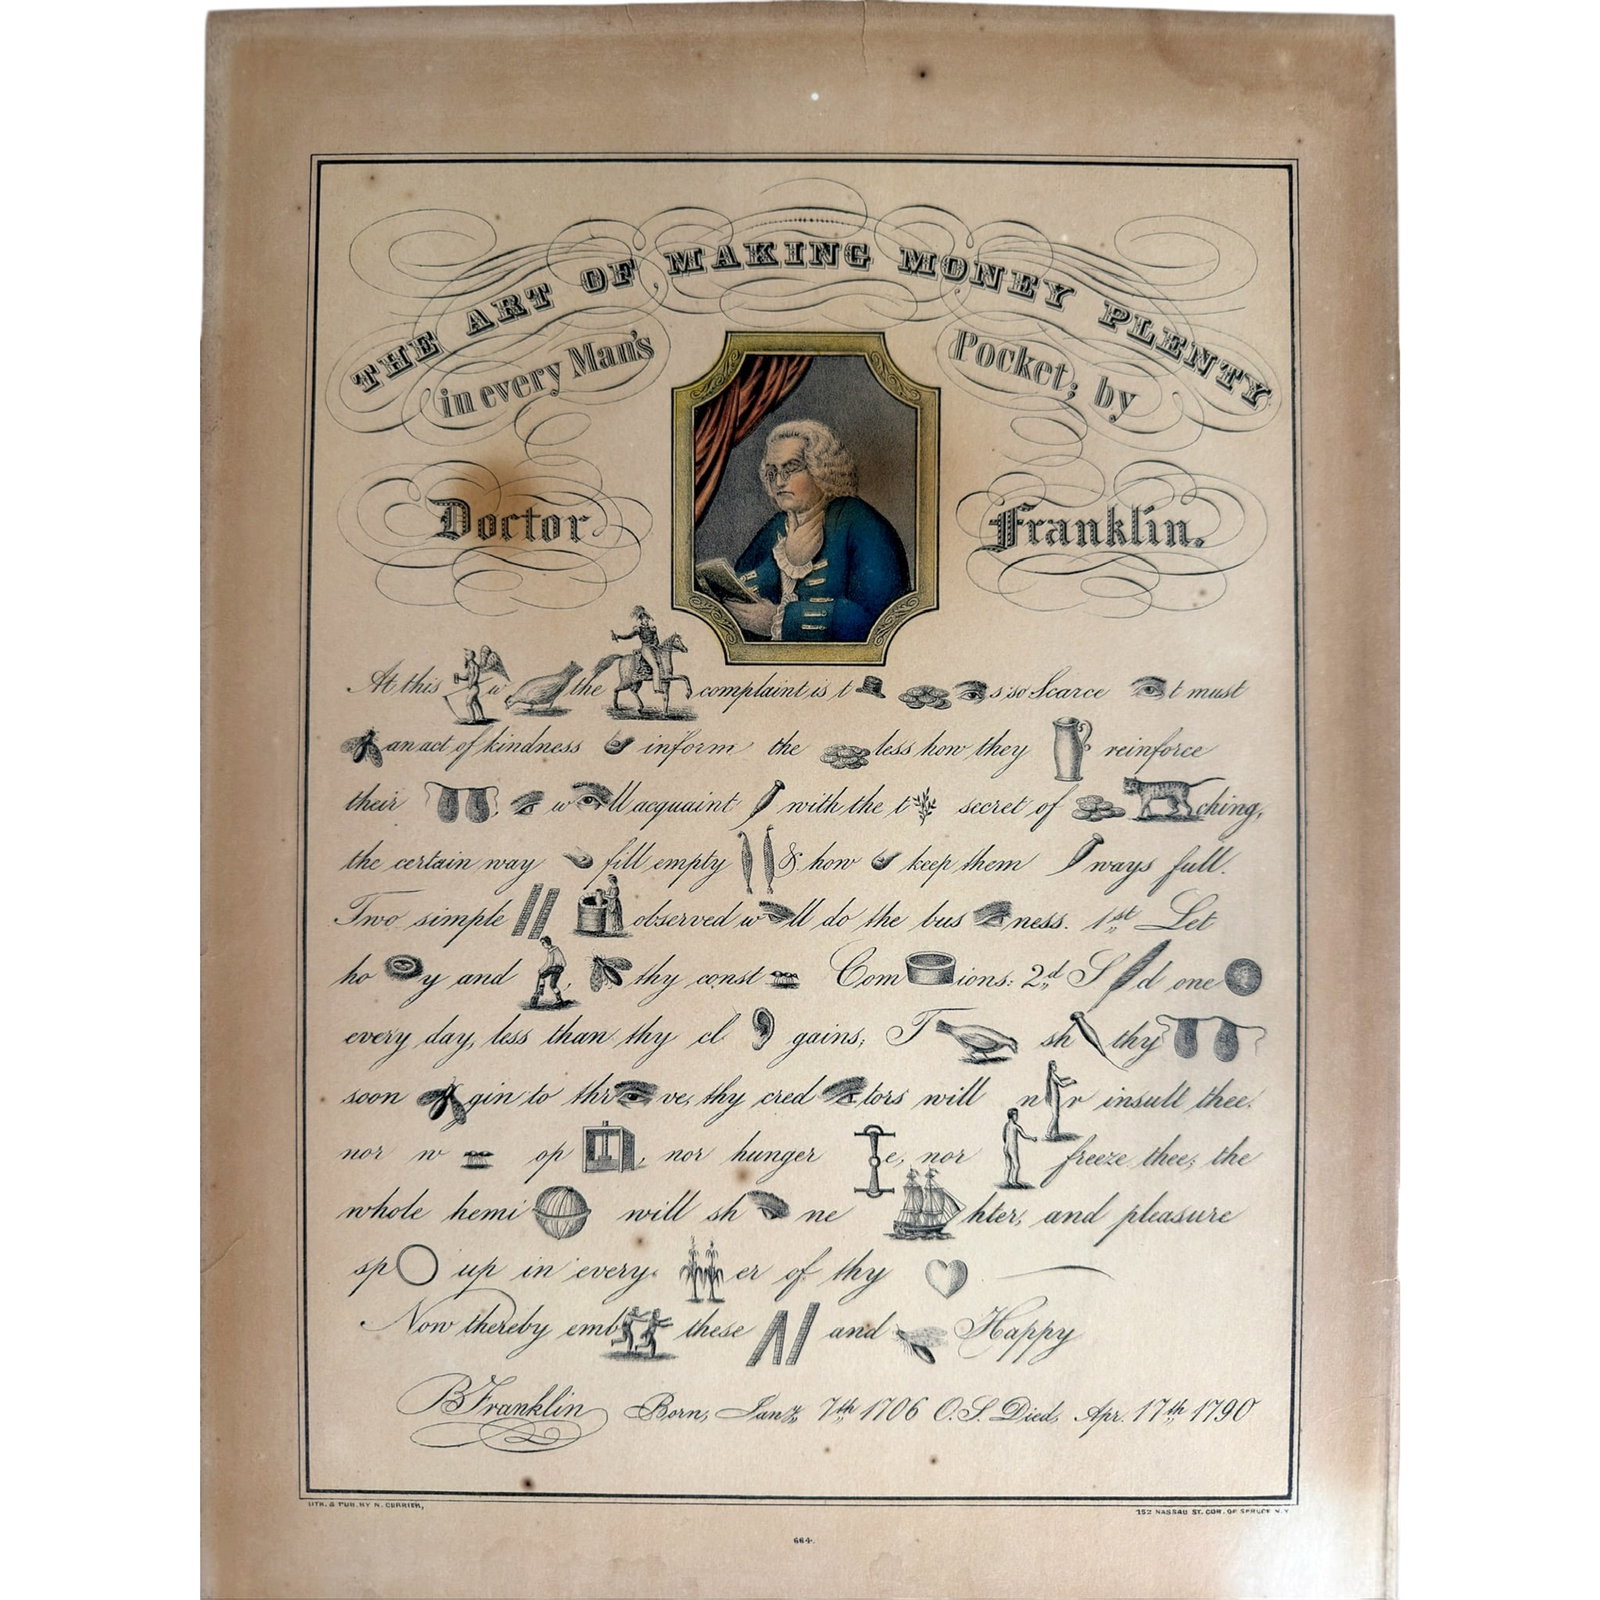 THE ART OF MAKING MONEY PLENTY
in every Man's Pocket; by
Doctor Franklin.
At this w the complaint is t s so Scarce t must
an act of kindness inform the less how they reinforce
their w ll acquaint with the t secret of ching,
the certain way fill empty & how keep them ways full.
Two simple observed w ll do the bus ness. 1st Let
ho y and , thy const Com ions: 2d S d one
every day, less than thy cl gains; T sh thy
soon gin to thr ve, thy cred tors will n r insult thee.
nor w op , nor hunger e, nor freeze thee; the
whole hemi will sh ne hter, and pleasure
sp up in every er of thy
Now thereby emb these and Happy
B Franklin Born, Jany 7th 1706 O.S. Died, Apr. 17th 1790
LITH. & PUB. BY N. CURRIER,
152 NASSAU ST. COR. OF SPRUCE N.Y.
664.